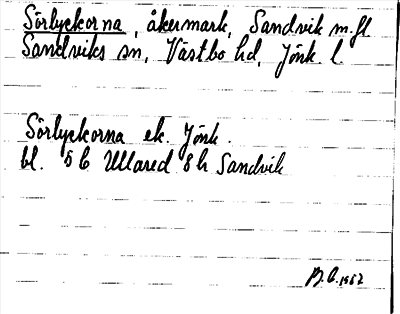 Sörlyckorna, åkermark, Sandvik m.fl
Sandviks sn, Västbo hd, Jönk. l.
Sörlyckorna ek. Jönk.
bl. 5 C Ullared 8 h Sandvik
B.C. 1962